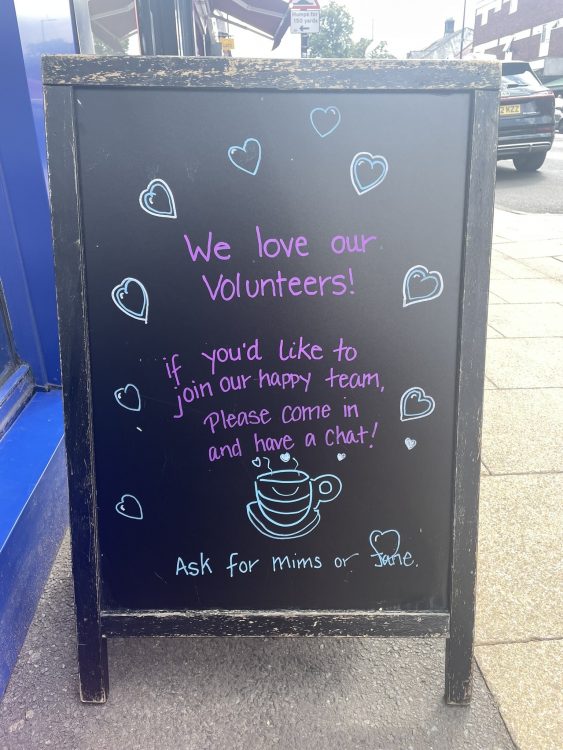 Humps for
150 yards
KZZ
We love our
Volunteers!
if you'd like to
join our happy team,
Please come in
and have a chat!
Ask for Mims or Jane.